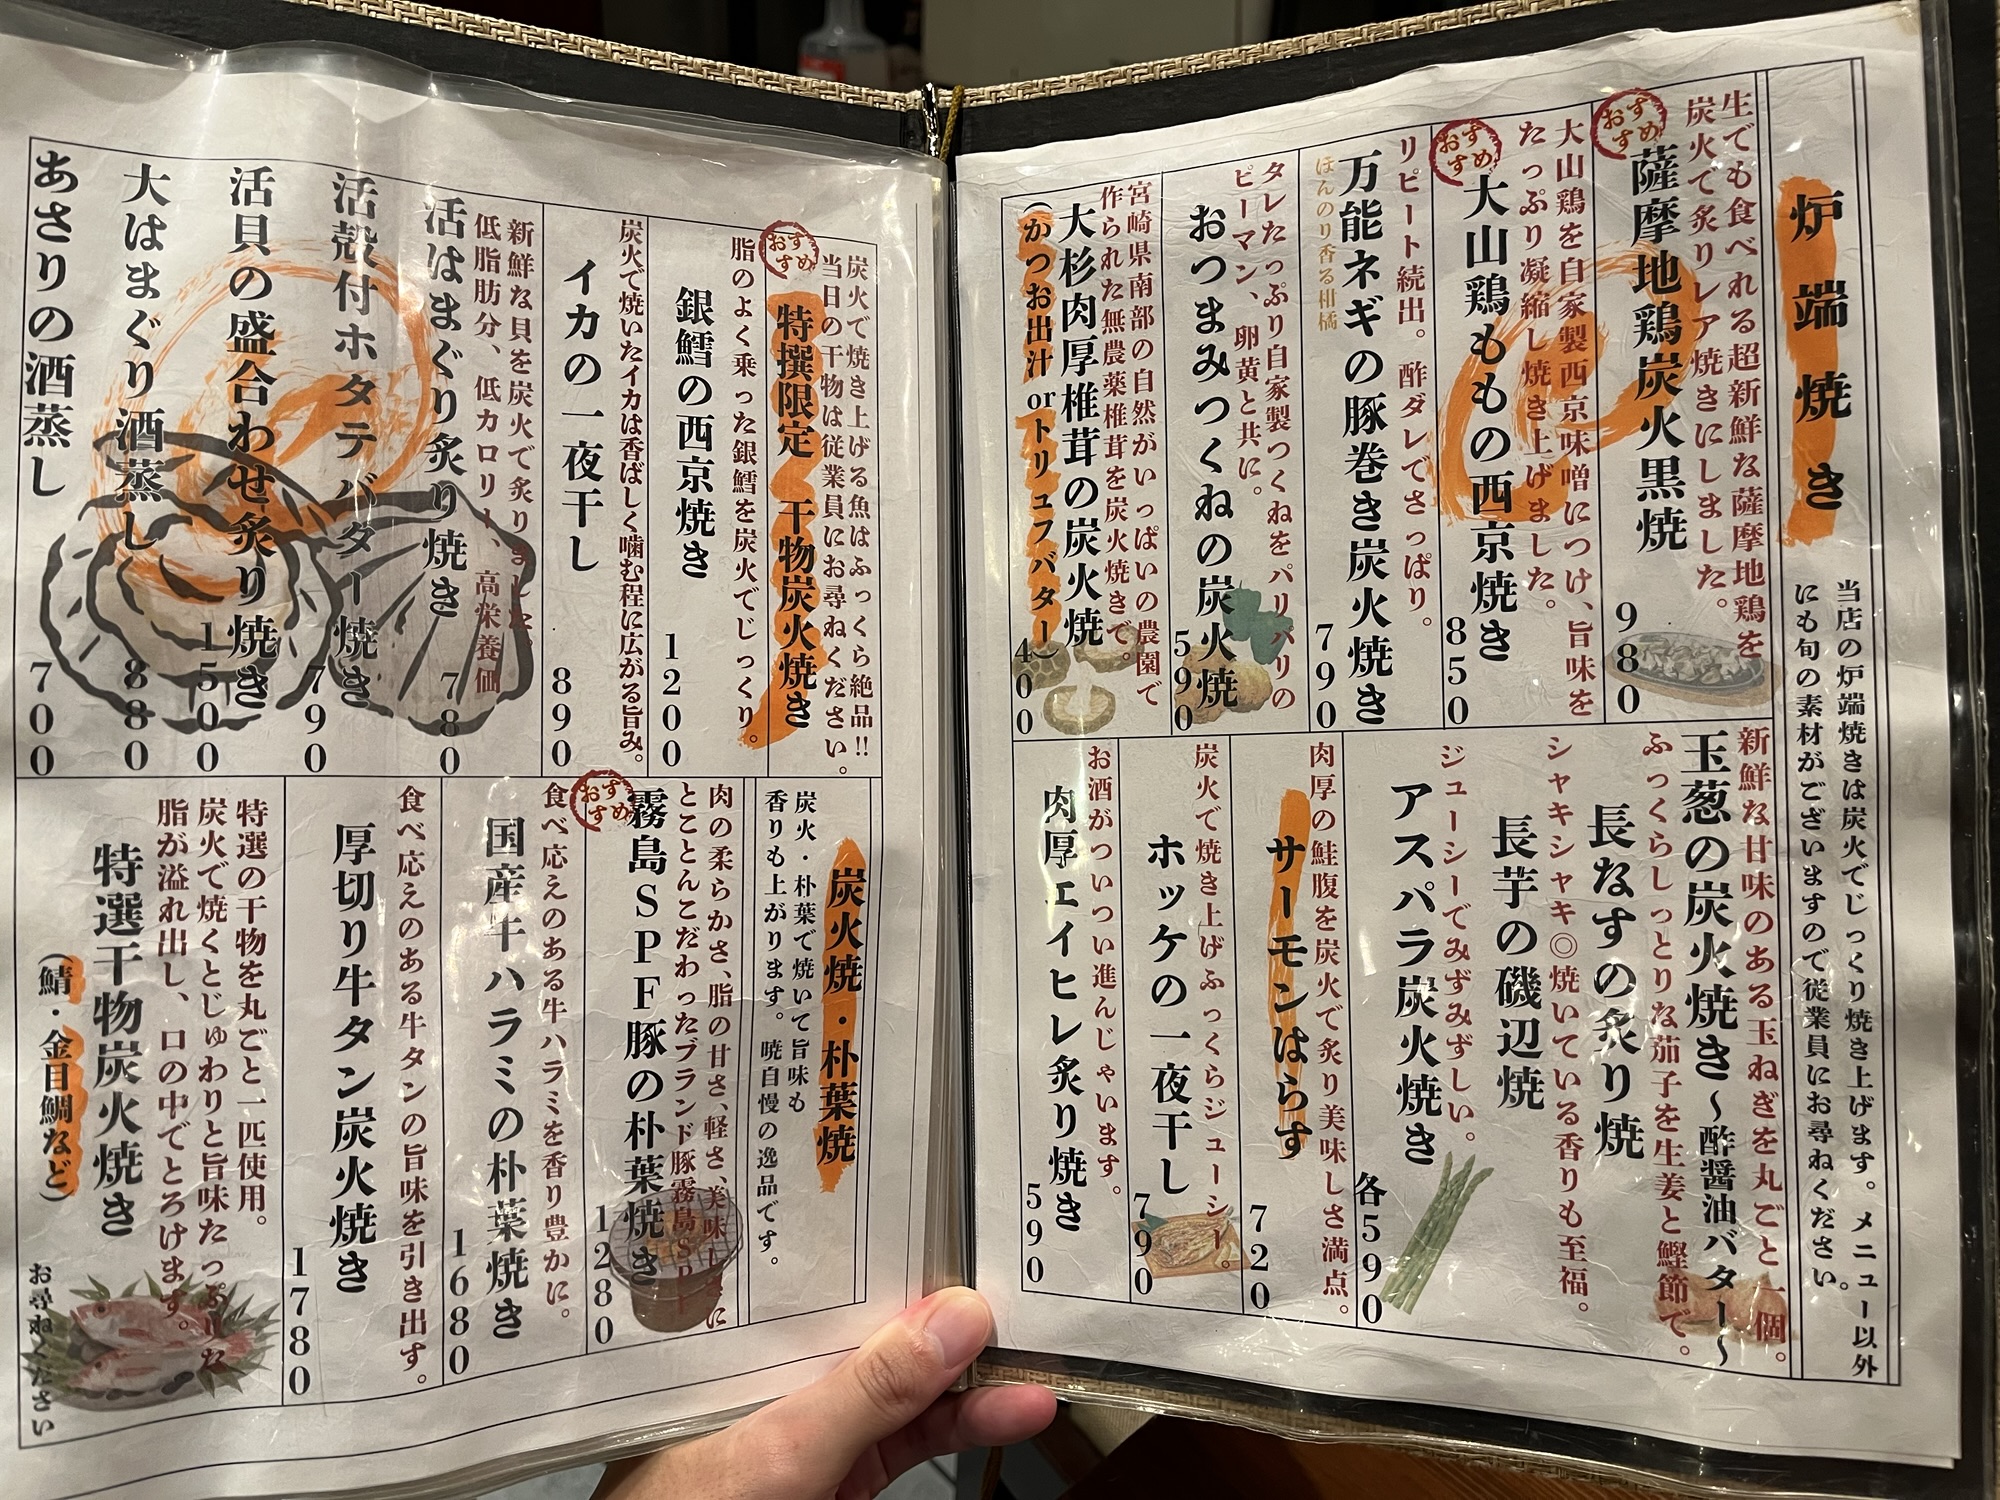 炉端焼き
当店の炉端焼きは炭火でじっくり焼き上げます。メニュー以外
にも旬の素材がございますので従業員にお尋ねください。
生でも食べれる超新鮮な薩摩地鶏を
炭火で炙りレア焼きにしました。
おすすめ
薩摩地鶏炭火黒焼
980
大山鶏を自家製西京味噌につけ、旨味を
たっぷり凝縮し焼き上げました。
おすすめ
大山鶏ももの西京焼き
850
リピート続出。酢ダレでさっぱり。
万能ネギの豚巻き炭火焼き
ほんのり香る柑橘
790
タレたっぷり自家製つくねをパリパリの
ピーマン、卵黄と共に。
おつまみつくねの炭火焼
590
宮崎県南部の自然がいっぱいの農園で
作られた無農薬椎茸を炭火焼きで。
大杉肉厚椎茸の炭火焼
(かつお出汁orトリュフバター)
400
新鮮な甘味のある玉ねぎを丸ごと一個。
玉葱の炭火焼き〜酢醤油バター〜
ふっくらしっとりな茄子を生姜と鰹節で。
長なすの炙り焼
シャキシャキ◎焼いている香りも至福。
長芋の磯辺焼
ジューシーでみずみずしい。
アスパラ炭火焼き
各590
肉厚の鮭腹を炭火で炙り美味しさ満点。
サーモンはらす
720
炭火で焼き上げふっくらジューシー。
ホッケの一夜干し
790
お酒がついつい進んじゃいます。
肉厚エイヒレ炙り焼き
590
炭火で焼き上げる魚はふっくら絶品!!
当日の干物は従業員にお尋ねください。
おすすめ
特撰限定 干物炭火焼き
脂のよく乗った銀鱈を炭火でじっくり。
銀鱈の西京焼き
1200
炭火で焼いたイカは香ばしく噛む程に広がる旨み。
イカの一夜干し
890
新鮮な貝を炭火で炙りました。
低脂肪分、低カロリー、高栄養価
活はまぐり炙り焼き
780
活殻付ホタテバター焼き
790
活貝の盛合わせ炙り焼き
1500
大はまぐり酒蒸し
880
あさりの酒蒸し
700
炭火焼・朴葉焼
炭火・朴葉で焼いて旨味も
香りも上がります。暁自慢の逸品です。
肉の柔らかさ、脂の甘さ、軽さ、美味しさに
とことんこだわったブランド豚霧島SPF
おすすめ
霧島SPF豚の朴葉焼き
1280
食べ応えのある牛ハラミを香り豊かに。
国産牛ハラミの朴葉焼き
1680
食べ応えのある牛タンの旨味を引き出す。
厚切り牛タン炭火焼き
1780
特選の干物を丸ごと一匹使用。
炭火で焼くとじゅわりと旨味たっぷりな
脂が溢れ出し、口の中でとろけます。
特選干物炭火焼き
(鯖・金目鯛など)
お尋ねください